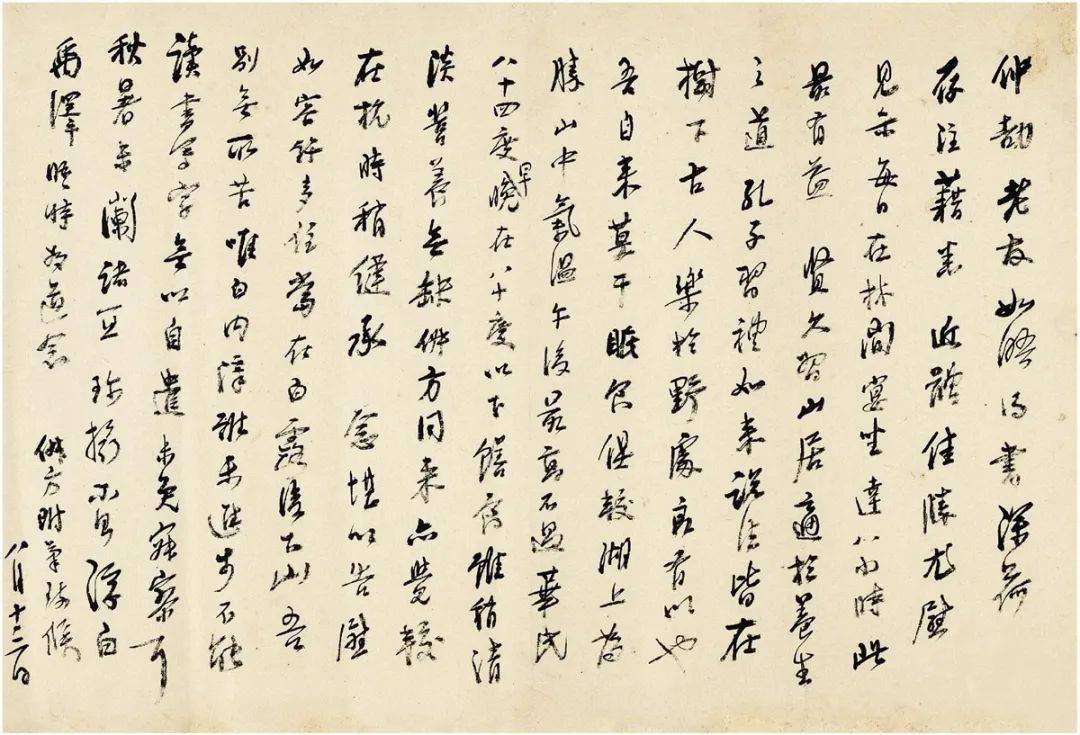 仲劼老友如晤得書深荷
存注藉悉 近體佳勝尤慰
見示每日在林間宴坐達八小時此
最有益 賢久習山居適於養生
之道孔子習禮如來說法皆在
樹下古人樂於野處良有以也
吾自來莫干眠食俱較湖上為
勝山中氣溫午後最高不過華氏
八十四度早晚在八十度以下饍食雖稍清
淡營養無缺 方同來亦覺較
在杭時稍健承 念堪以告慰
如容許多住當在白露後下山吾
別無所苦唯白內障雖未進步不能
讀書寫字無以自遣未免寂寥耳
秋暑未闌諸宜珍攝不具 浮白
禹澤晤時為道念 方附筆致候
八月十二日